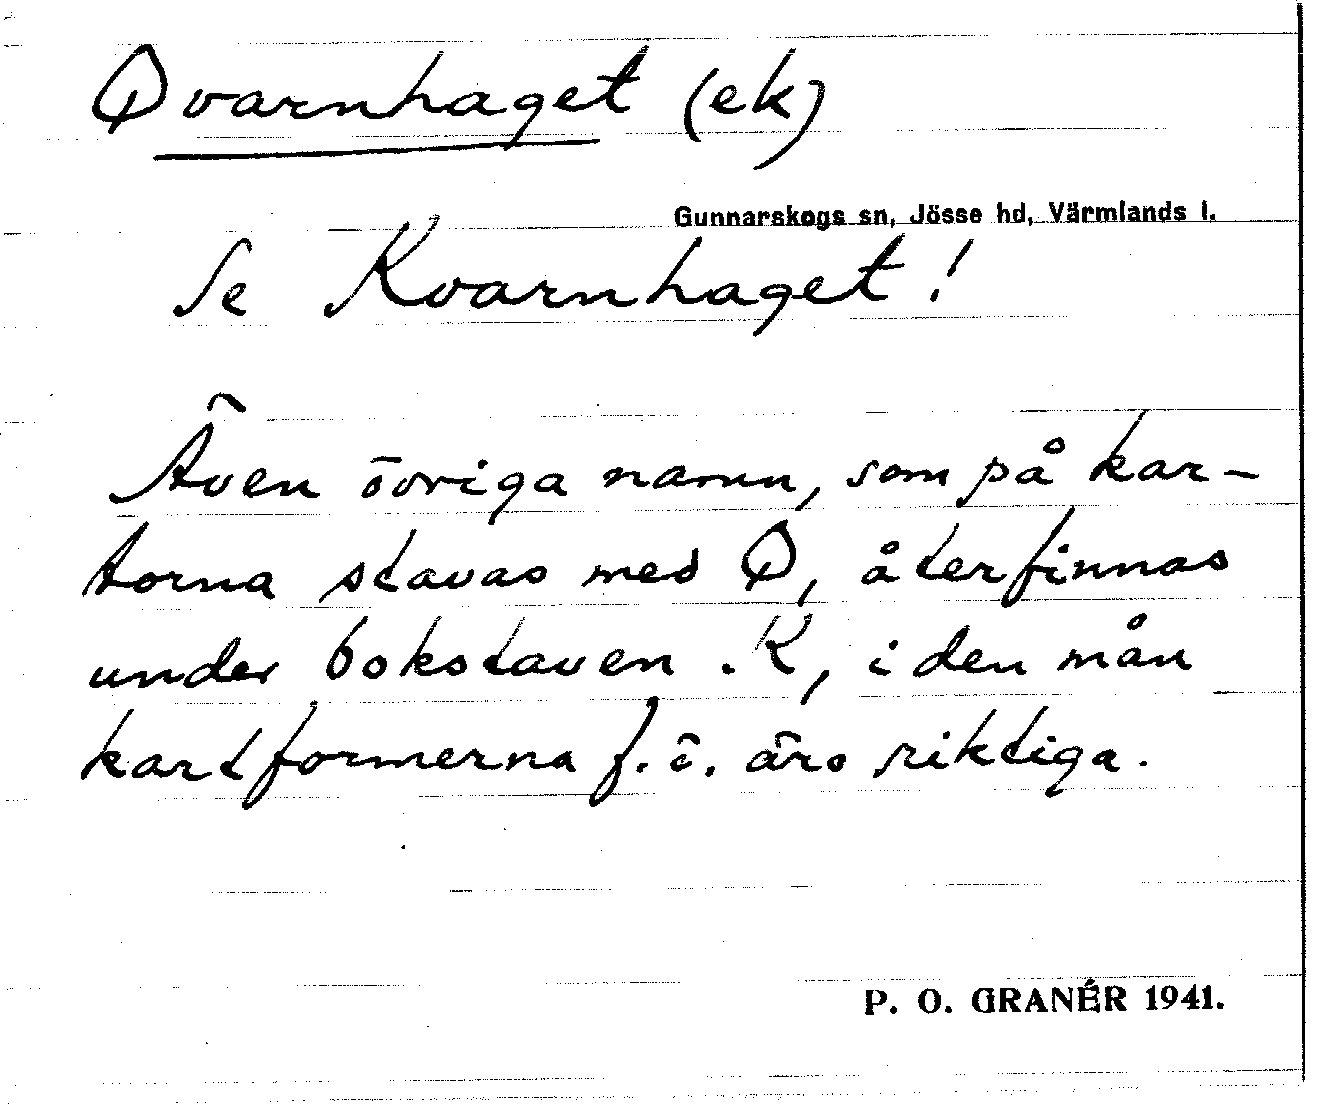 Qvarnhaget (ek)
Gunnarskogs sn, Jösse hd, Värmlands l.
Se Kvarnhaget!
Även övriga namn, som på kar-
torna stavas med Q, återfinnas
under bokstaven K, i den mån
kartformerna f. ö. äro riktiga.
P. O. GRANÉR 1941.